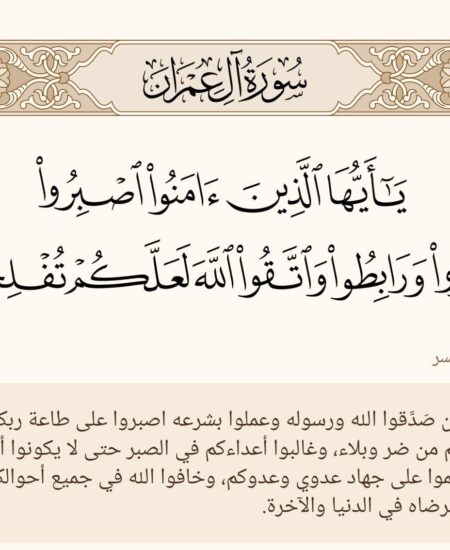 سُورَةُ آلِ عِمْرَانَ
يَـٰٓأَيُّهَا ٱلَّذِينَ ءَامَنُوا۟ ٱصْبِرُوا۟
وَرَابِطُوا۟ وَٱتَّقُوا۟ ٱللَّهَ لَعَلَّكُمْ
صَدَّقوا الله ورسوله وعملوا بشرعه اصبروا على طاعة
من ضر وبلاء، وغالبوا أعداءكم في الصبر حتى لا يكونوا
على جهاد عدوي وعدوكم، وخافوا الله في جميع
في الدنيا والآخرة.